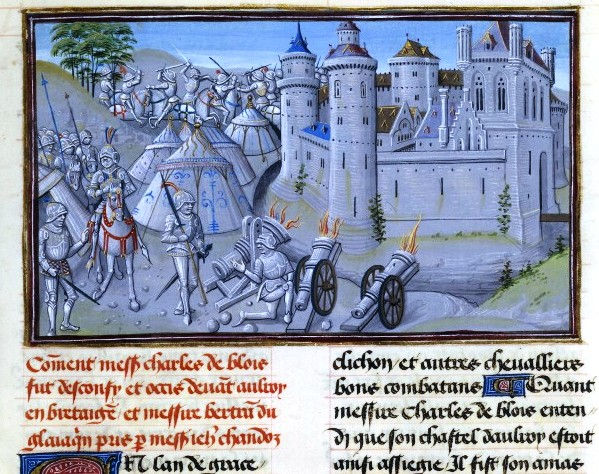 Coment mess charles de blois
fut desconfy et occis deuãt aulroy
en bretaigne et messire bertrã du
glaiaqñ pris p mess ieh chandoz
N lan de grace
clichon et autres cheualliers
bons combatans Quant
messire Charles de blois enten
di que son chastel daulroy estoit
ainsi assiegie Il fist son amas